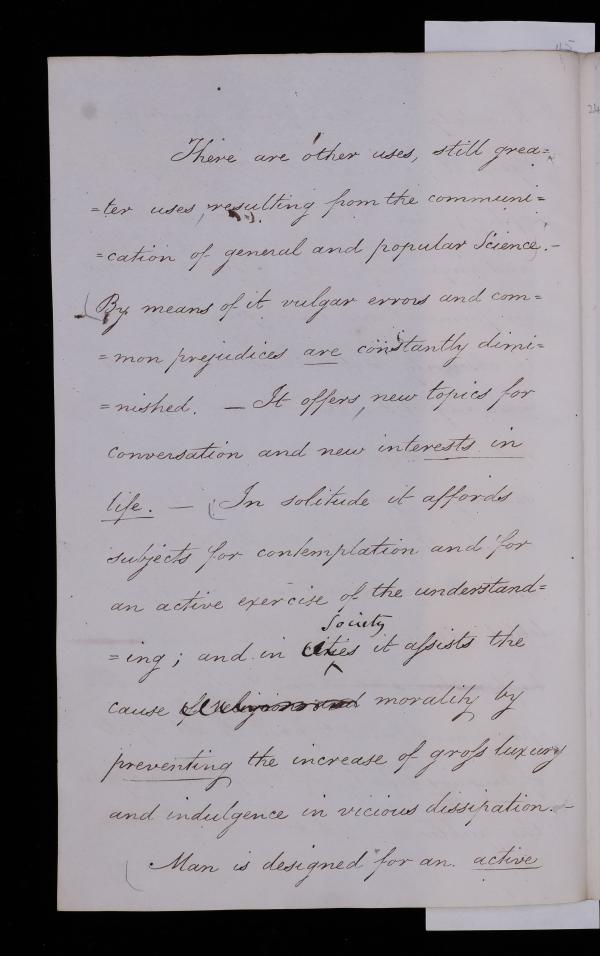 45
24
There are other uses, still grea=
=ter uses, resulting from the communi=
=cation of general and popular Science. -
By means of it vulgar errors and com=
=mon prejudices are constantly dimi=
=nished. — It offers, new topics for
conversation and new interests in
life. — In solitude it affords
subjects for contemplation and for
an active exercise of the understand=
Society
=ing; and in cities it assists the
cause of religion and morality by
preventing the increase of gross luxury
and indulgence in vicious dissipation. -
Man is designed for an active